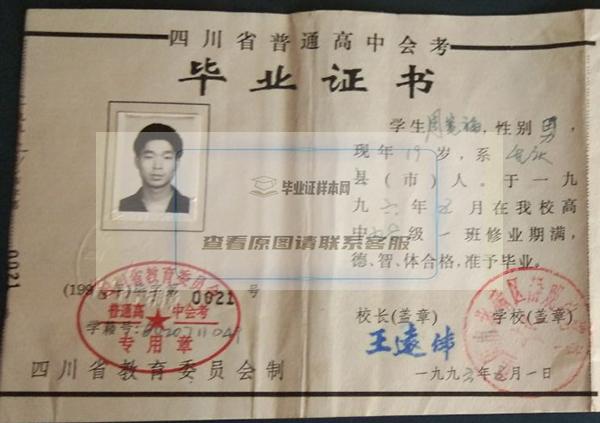 四川省普通高中会考
毕业证书
学生周宪福,性别男,
现年19岁,系
县(市)人。于一九
九 年 月在我校高
中 级一班修业期满,
德、智、体合格,准予毕业。
毕业证样本网
查看原图请联系客服
0021
(199 0021 号
四川省教育委员会
普通高中会考
专用章
学籍号:
校长(盖章) 学校(盖章)
王远伟
四川省教育委员会制
一九九 年 月一日